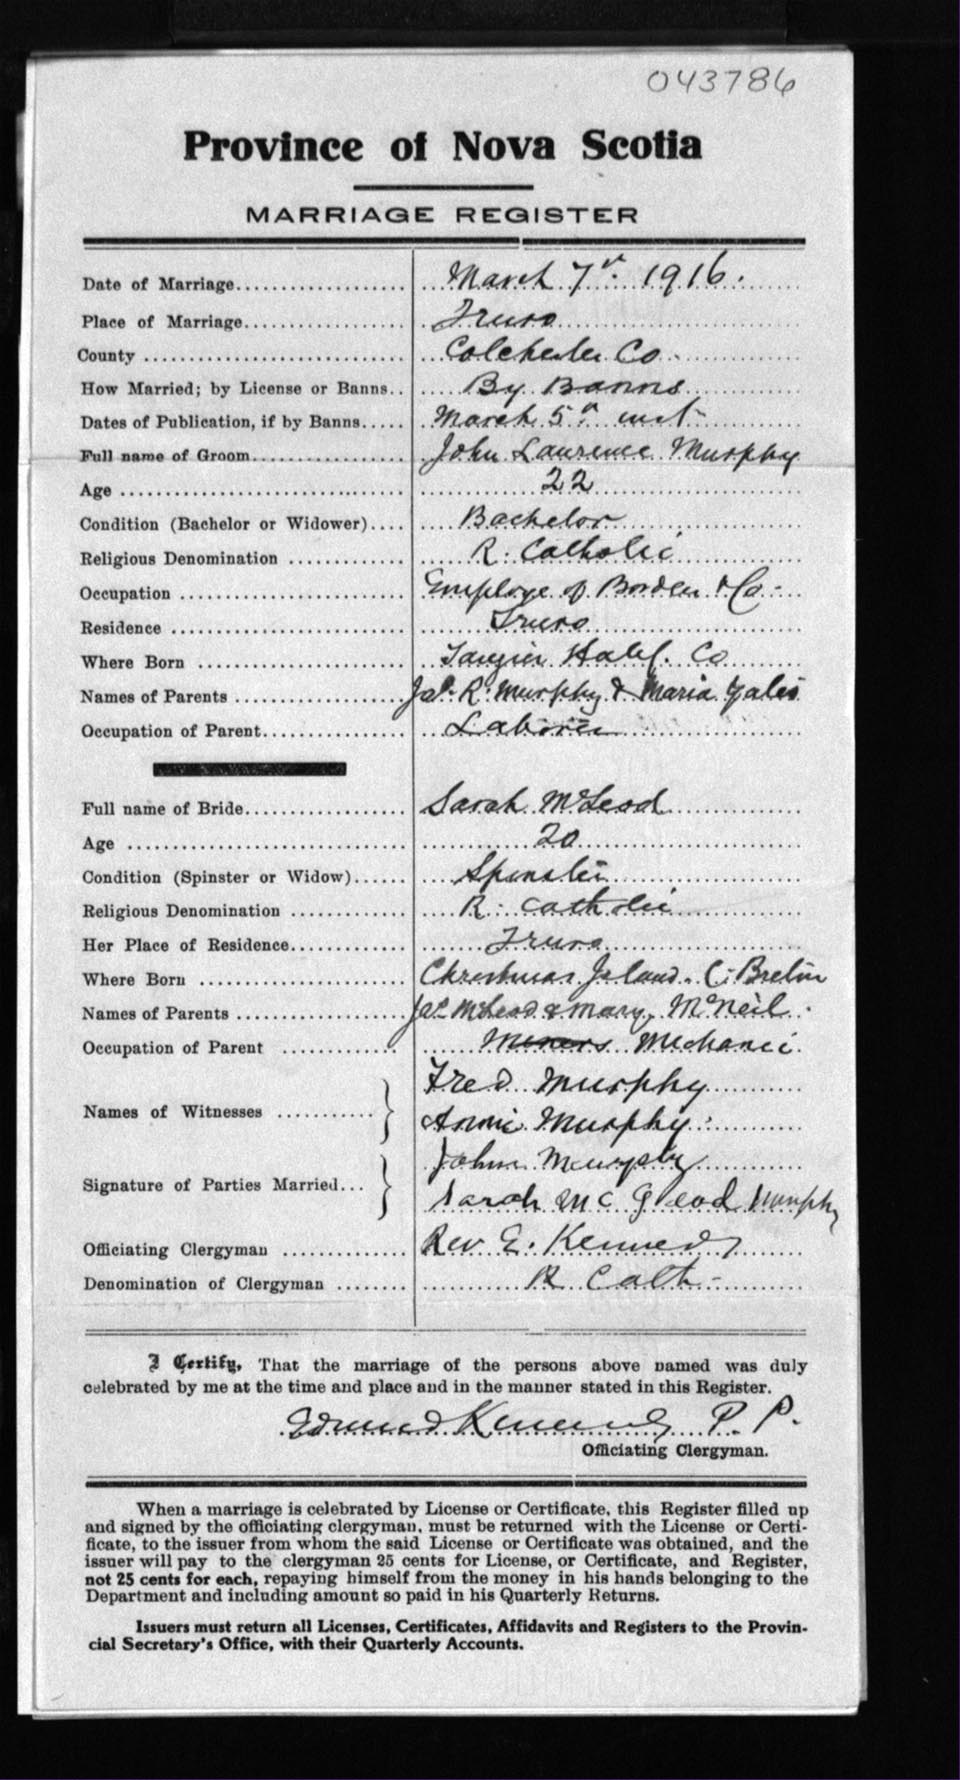 043786
Province of Nova Scotia
MARRIAGE REGISTER
Date of Marriage March 7th 1916.
Place of Marriage Truro
County Colchester Co.
How Married; by License or Banns By Banns
Dates of Publication, if by Banns March 5th inst
Full name of Groom John Laurence Murphy
Age 22
Condition (Bachelor or Widower) Bachelor
Religious Denomination R. Catholic
Occupation Employe of Borden & Co-
Residence Truro
Where Born Tangier Half. Co
Names of Parents Jas. R. Murphy & Maria
Occupation of Parent Laborer
Full name of Bride Sarah McLeod
Age 20
Condition (Spinster or Widow) Spinster
Religious Denomination R. Catholic
Her Place of Residence Truro
Where Born Christmas Island. C. Breton
Names of Parents Jas McLeod & Mary McNeil
Occupation of Parent Miners Mechanic
Names of Witnesses Fred Murphy
Annie Murphy
Signature of Parties Married John Murphy
Sarah Mc Leod Murphy
Officiating Clergyman Rev E. Kennedy
Denomination of Clergyman R Cath-
I Certify, That the marriage of the persons above named was duly
celebrated by me at the time and place and in the manner stated in this Register.
Edmund Kennedy P. P.
Officiating Clergyman.
When a marriage is celebrated by License or Certificate, this Register filled up
and signed by the officiating clergyman, must be returned with the License or Certi-
ficate, to the issuer from whom the said License or Certificate was obtained, and the
issuer will pay to the clergyman 25 cents for License, or Certificate, and Register,
not 25 cents for each, repaying himself from the money in his hands belonging to the
Department and including amount so paid in his Quarterly Returns.
Issuers must return all Licenses, Certificates, Affidavits and Registers to the Provin-
cial Secretary's Office, with their Quarterly Accounts.